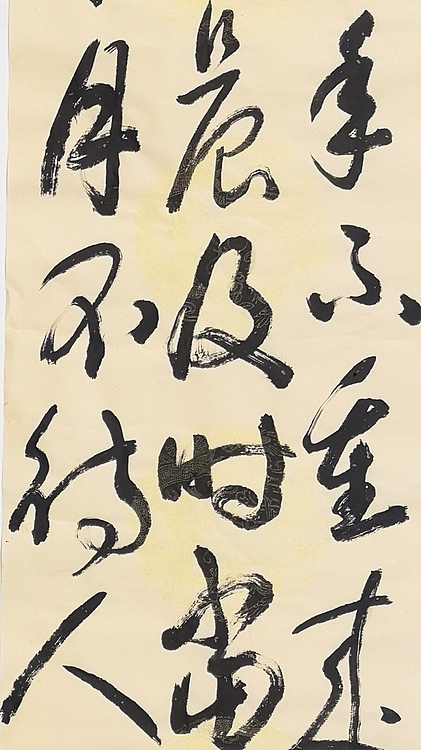 年不重来
晨及时當
月不待人